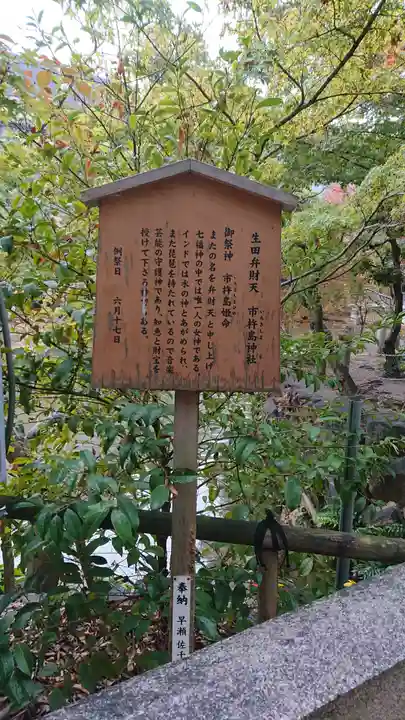 生田弁財天　市杵島神社
いちきしま
御祭神　市杵島姫命
またの名を弁財天と申し上げ
七福神の中では唯一人の女神である。
インドでは水の神とあがめられ
また琵琶を持たれているので音楽
芸能の守護神であり、知恵と財宝を
授けて下さる
ある。
例祭日　六月十七日
奉納　早瀬　佐千